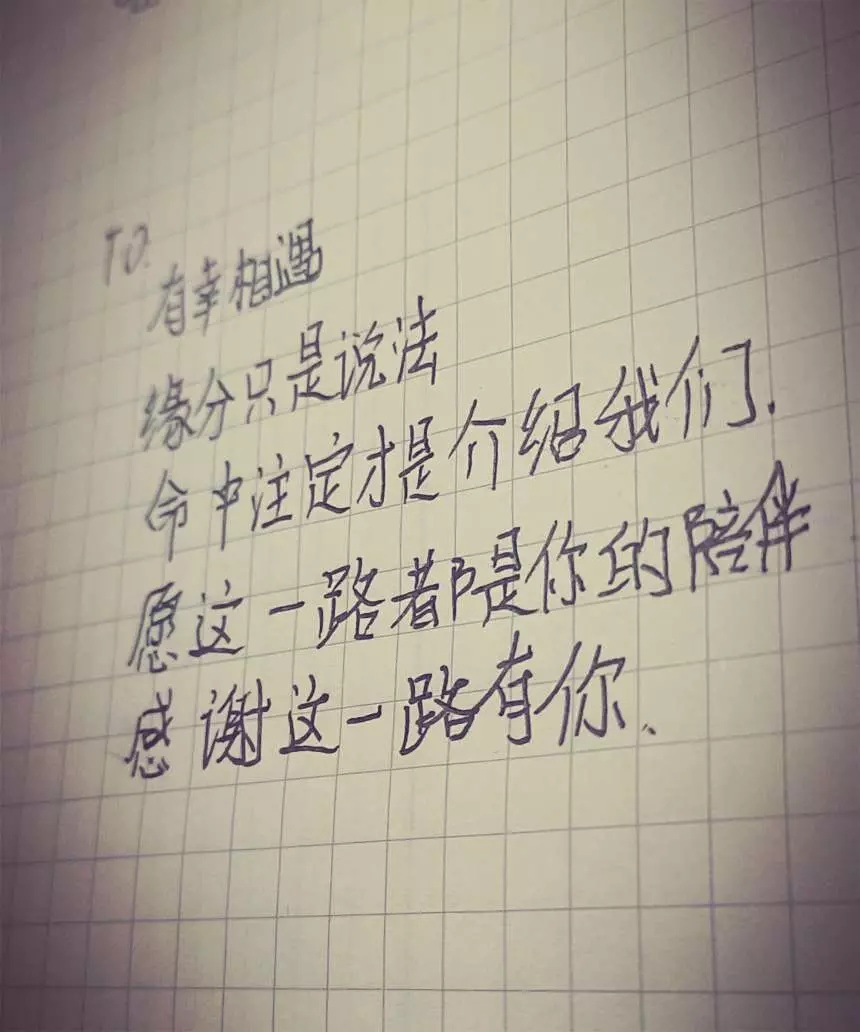 TO.
有幸相遇
缘分只是说法
命中注定才是介绍我们.
愿这一路都是你的陪伴
感谢这一路有你、